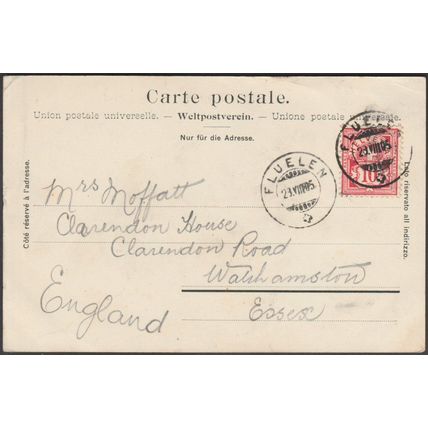 Carte postale.
Union postale universelle. — Weltpostverein. — Unione postale universale.
Nur für die Adresse.
Côté réservé à l'adresse.
Lato riservato all indirizzo.
FLUELEN
23.VIII.05
FLUELEN
23.VIII.05
10
Mrs Moffatt
Clarendon House
Clarendon Road
Walhamston
Essex
England